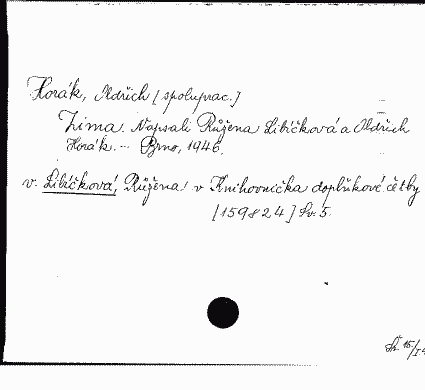 Horák, Oldřich [spoluprac.]
Zima. Napsali Růžena Libíčková a Oldřich
Horák. - Brno, 1946.
v. Libíčková, Růžena: v Knihovnička doplňkové četby
[159824] Sv. 5.